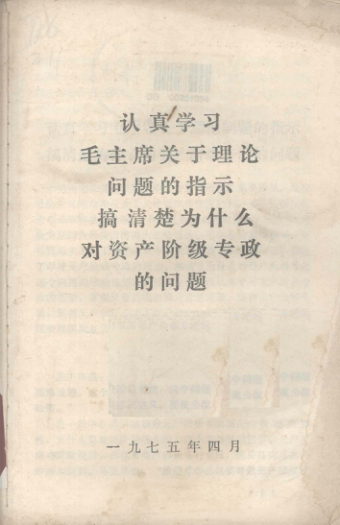 认真学习
毛主席关于理论
问题的指示
搞清楚为什么
对资产阶级专政
的问题
一九七五年四月